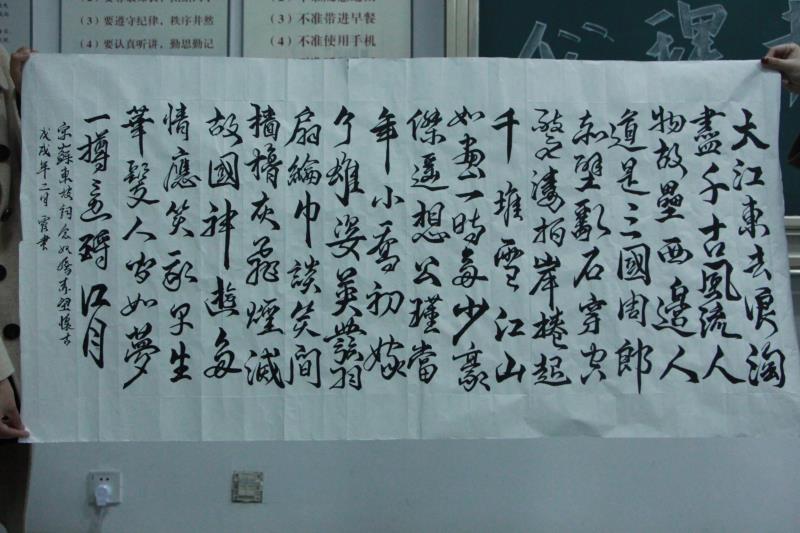 (3) 要遵守纪律，秩序井然
(4) 要认真听讲，勤思勤记
(3) 不准带进早餐
(4) 不准使用手机
理
大江東去浪淘
盡千古風流人
物故壘西邊人
道是三國周郎
赤壁亂石穿空
驚濤拍岸捲起
千堆雪江山
如畫一時多少豪
傑遥想公瑾當
年小喬初嫁
了雄姿英發羽
扇綸巾談笑間
樯櫓灰飛煙滅
故國神遊多
情應笑我早生
華髮人间如夢
一樽還酹江月
宋蘇東坡詞念奴嬌赤壁懷古
戊戌年二月 書